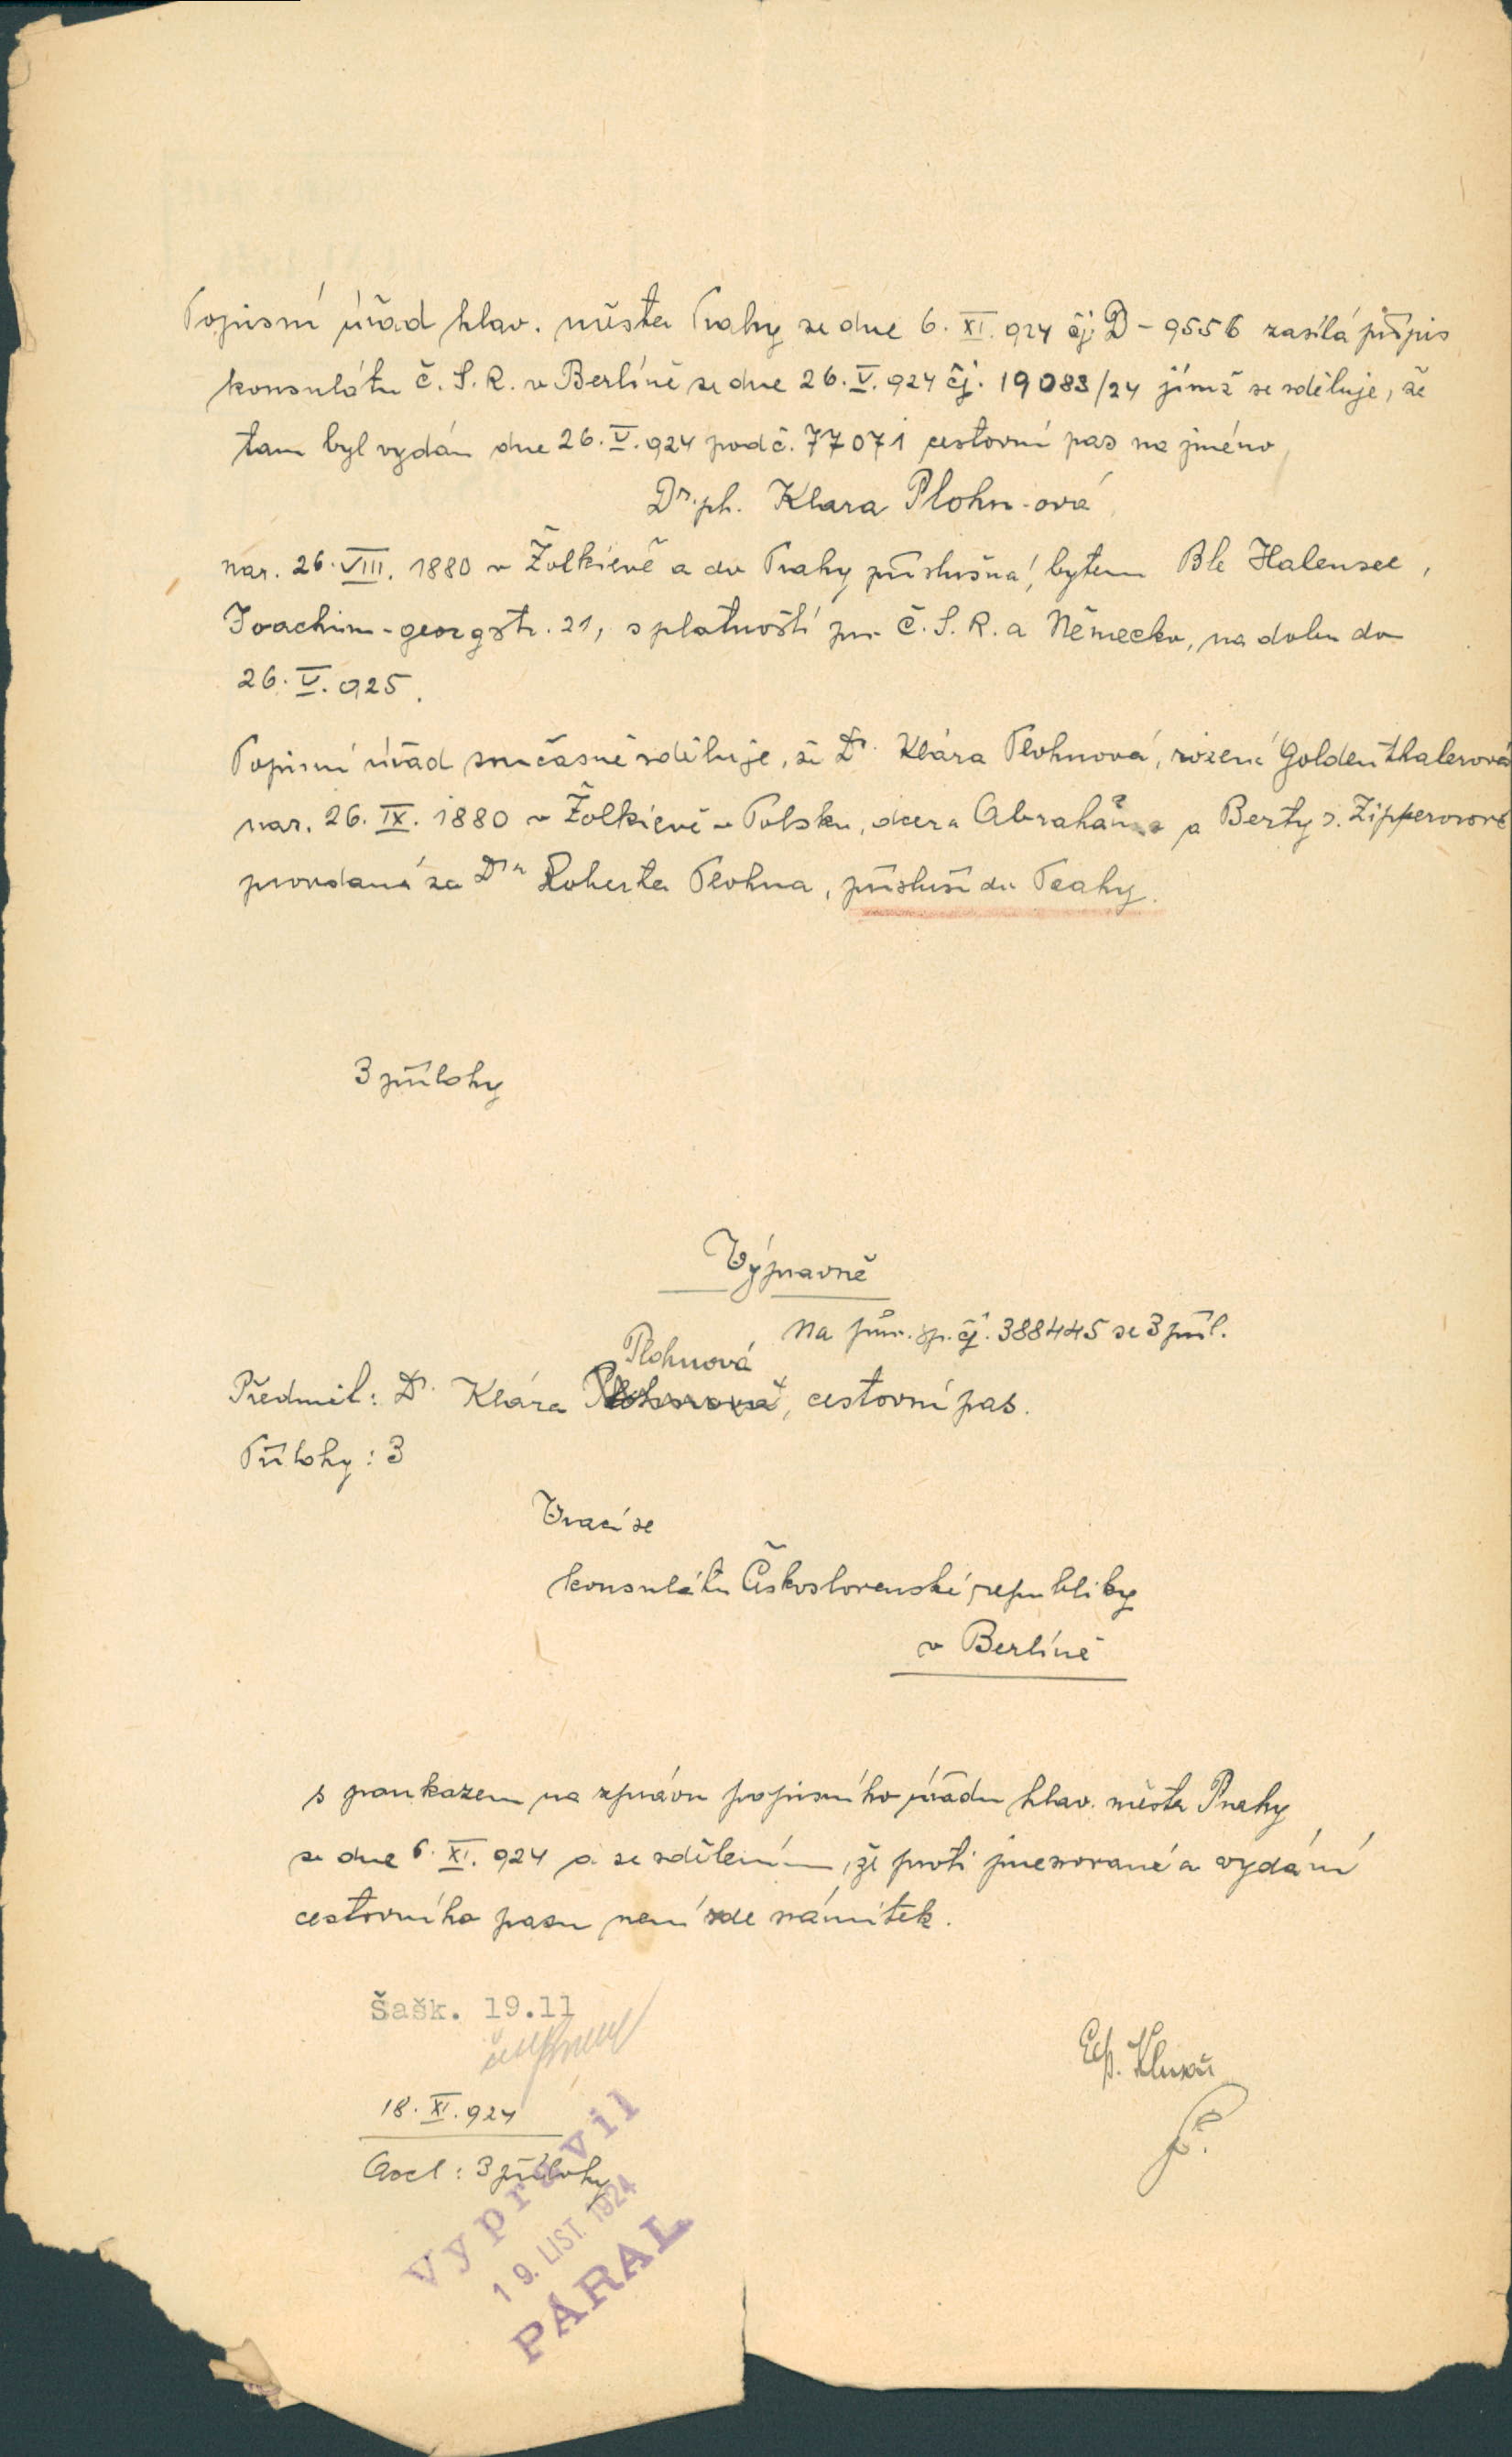 Popisní úřad hlav. města Prahy ze dne 6. XI. 924 čj. D - 9556 zasílá přípis
konsulátu Č. S. R. v Berlíně ze dne 26. V. 924 čj. 19083/24 jímž se sděluje, že
tam byl vydán dne 26. V. 924 pod č. 77071 cestovní pas na jméno
Dr. ph. Klara Plohn-ová
nar. 26. VIII. 1880 v Žolkievě a do Prahy příslušná, bytem Ble Halensee,
Joachim-georgstr. 21, s platností pro Č. S. R. a Německo, na dobu do
26. V. 925.
Popisní úřad současně sděluje, že Dr. Klára Plohnová, rozená Goldenthalerová
nar. 26. IX. 1880 v Žolkievě v Polsku, dcera Abraháma a Berty r. Zipperové
provdaná za Dra Roberta Plohna, přísluší do Prahy.
3 přílohy
Výpravně
Na pův. sp. čj. 388445 se 3 příl.
Plohnová
Předmět: Dr. Klára, cestovní pas.
Přílohy: 3
Vrací se
konsulátu Československé republiky
v Berlíně
s poukazem na zprávu popisního úřadu hlav. města Prahy
ze dne 6. XI. 924 a se sdělením, že proti jmenované a vydání
cestovního pasu není zde námitek.
Šašk. 19.11
18. XI. 924
Accl: 3 přílohy
Vypravil
19. LIST. 1924
PÁRAL